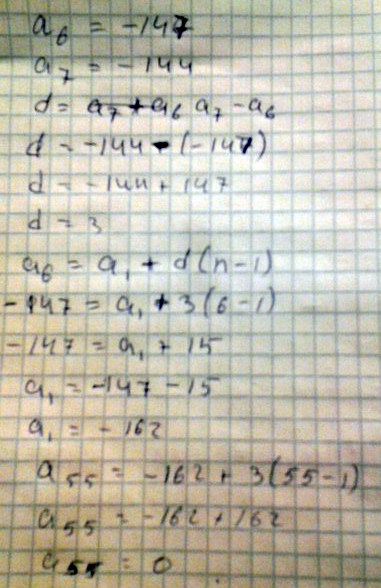 a₆ = -147
a₇ = -144
d = a₇ - a₆
d = -144 - (-147)
d = -144 + 147
d = 3
a₆ = a₁ + d(n-1)
-147 = a₁ + 3(6-1)
-147 = a₁ + 15
a₁ = -147 - 15
a₁ = -162
a₅₅ = -162 + 3(55-1)
a₅₅ = -162 + 162
a₅₅ = 0